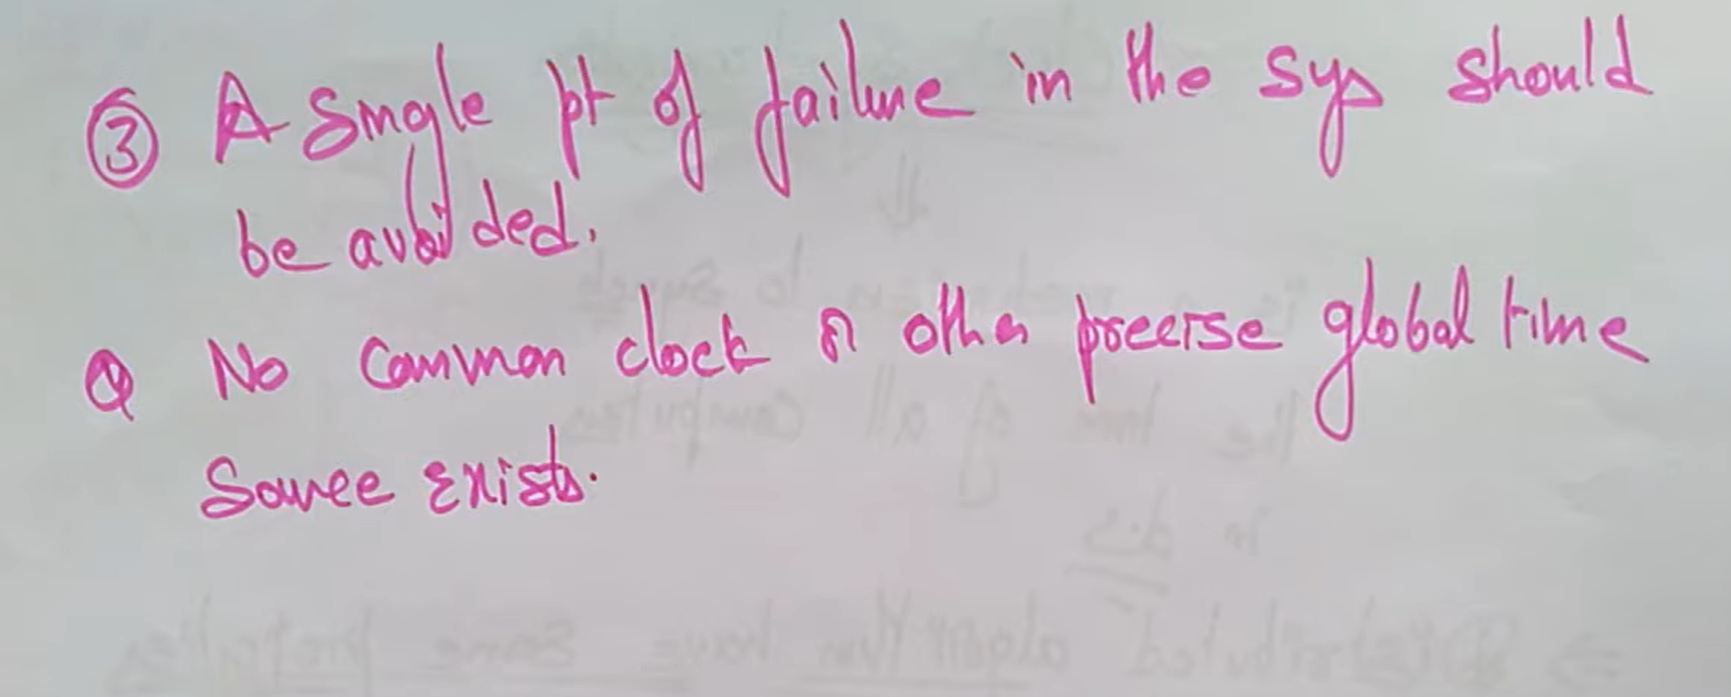 ③ A Single pt of failure in the sys should
be avoided.
④ No Common clock or other precise global time
Source exists.